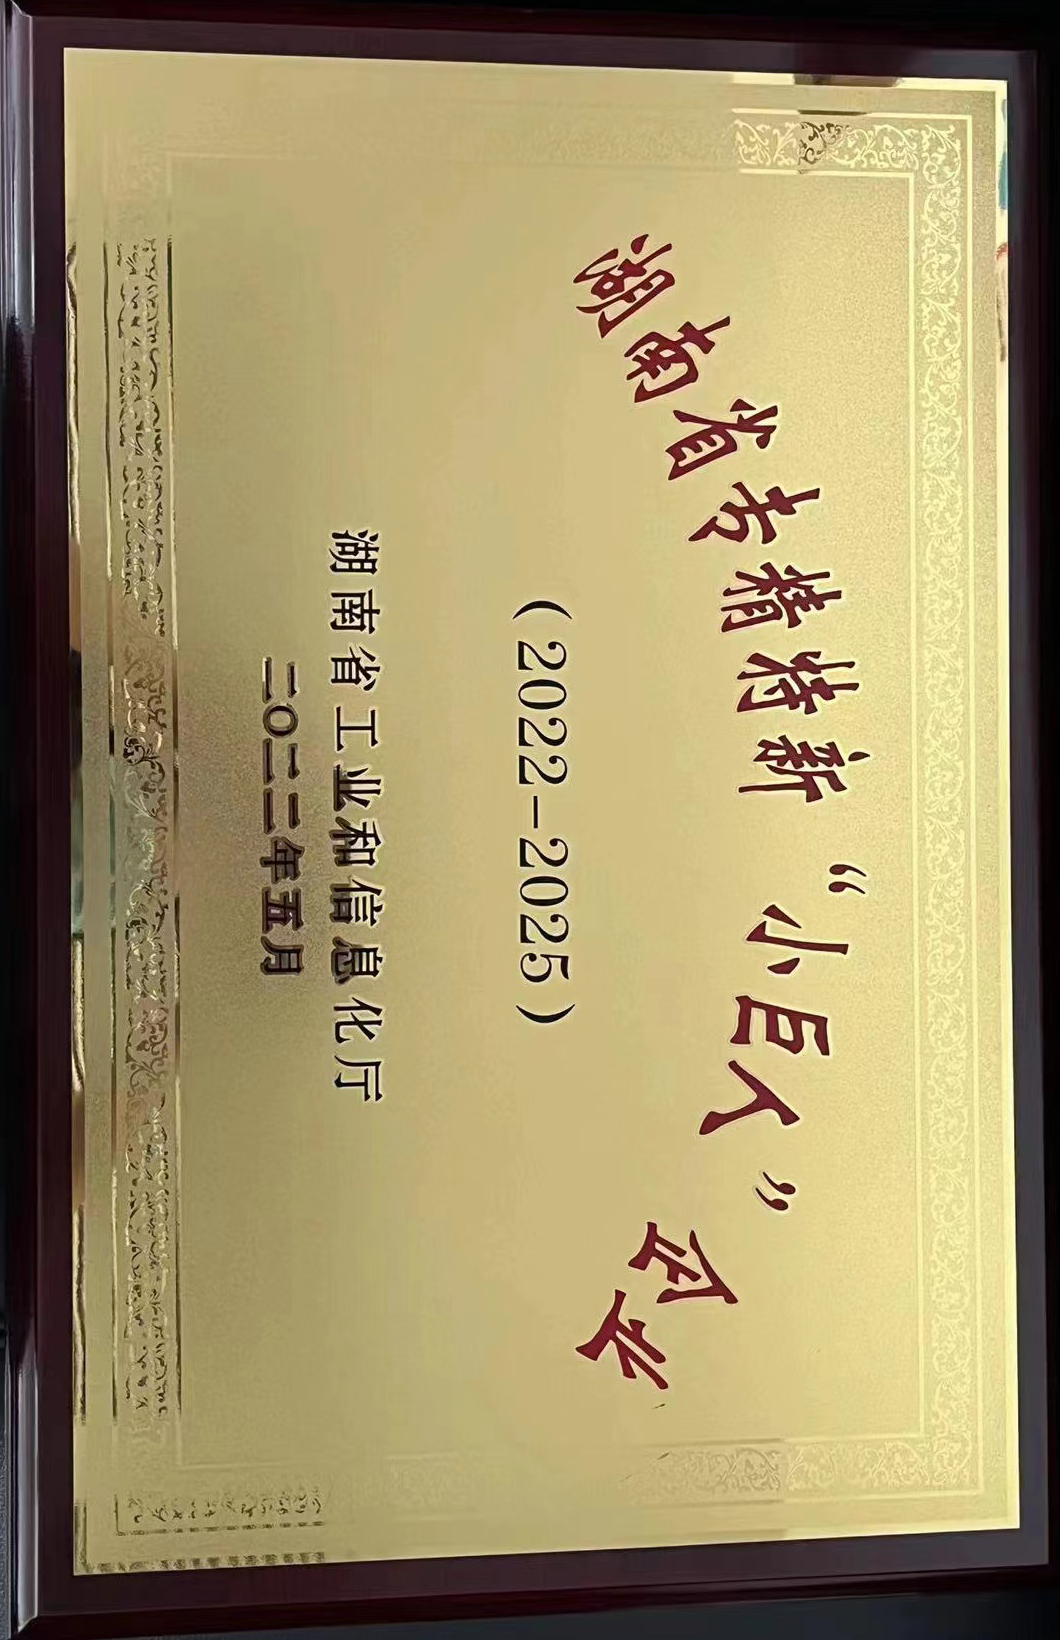 湖南省专精特新“小巨人”企业
(2022-2025)
湖南省工业和信息化厅
二〇二二年五月